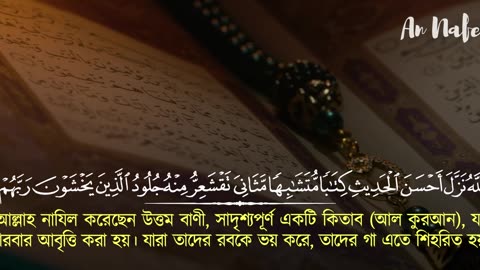 An Nafe
اللَّهُ نَزَّلَ أَحْسَنَ الْحَدِيثِ كِتَابًا مُّتَشَابِهًا مَّثَانِيَ تَقْشَعِرُّ مِنْهُ جُلُودُ الَّذِينَ يَخْشَوْنَ رَبَّهُمْ
আল্লাহ নাযিল করেছেন উত্তম বাণী, সাদৃশ্যপূর্ণ একটি কিতাব (আল কুরআন), যা
বারবার আবৃত্তি করা হয়। যারা তাদের রবকে ভয় করে, তাদের গা এতে শিহরিত হয়